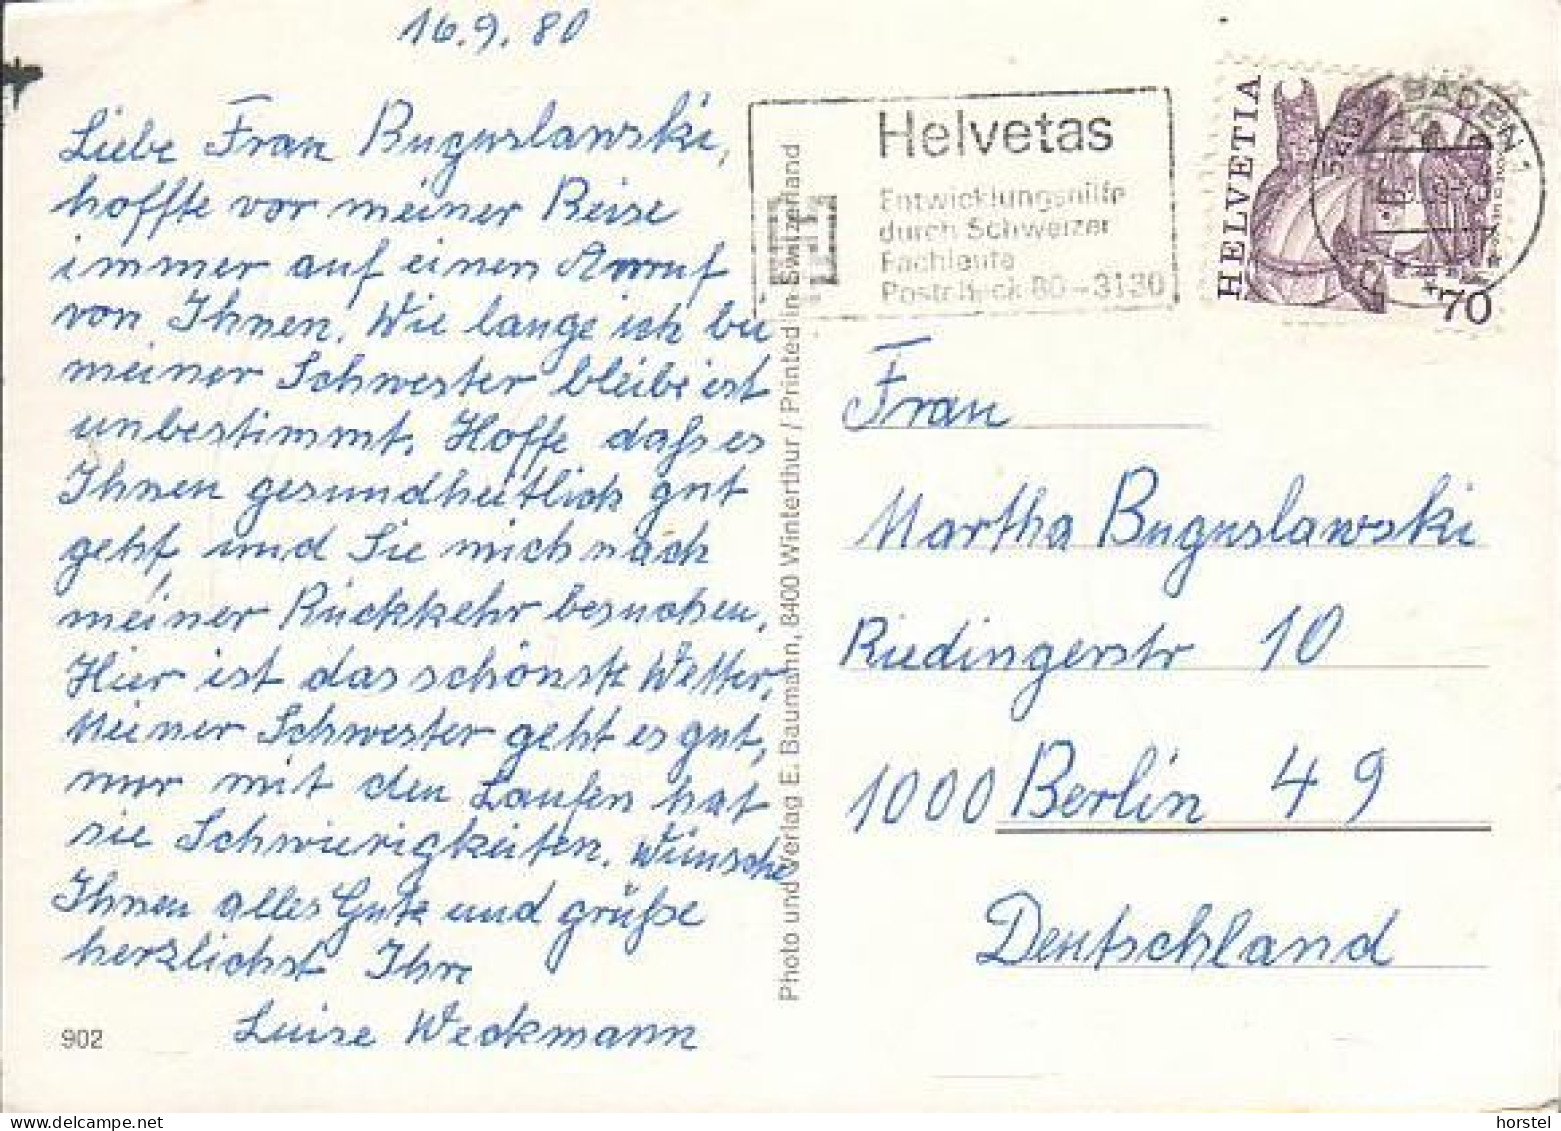 16.9.80
Liebe Frau Buguslawski,
hoffte vor meiner Reise
immer auf einen Anruf
von Ihnen. Wie lange ich bei
meiner Schwester bleibe ist
unbestimmt. Hoffe daß es
Ihnen gesundheitlich gut
geht, und Sie mich nach
meiner Rückkehr besuchen.
Hier ist das schönste Wetter.
Meiner Schwester geht es gut,
nur mit den Laufen hat
sie Schwierigkeiten. Wünsche
Ihnen alles Gute und grüße
herzlichst Ihre
Luise Weckmann
902
Photo und Verlag E. Baumann, 8400 Winterthur / Printed in Switzerland
Helvetas
Entwicklungshilfe
durch Schweizer
Fachleute
Postcheck 80-3130
HELVETIA
70
BADEN 1
Frau
Martha Buguslawski
Riedingerstr 10
1000 Berlin 49
Deutschland
horstel